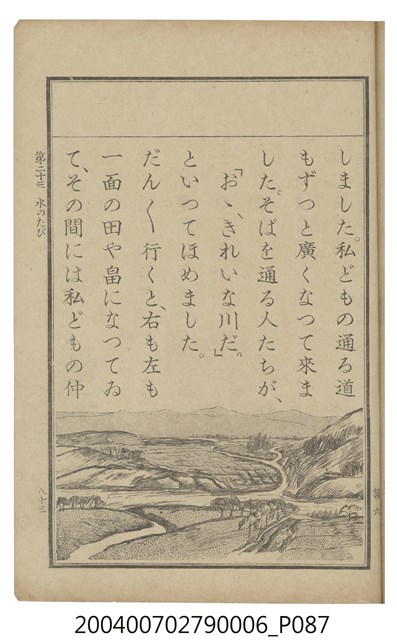 しました。私どもの通る道
もずつと廣くなつて來ま
した。そばを通る人たちが、
「おゝ、きれいな川だ。」
といつてほめました。
だん〳〵行くと、右も左も
一面の田や畠になつてゐ
て、その間には私どもの仲
第二十三 水のたび
八十三
200400702790006_P087